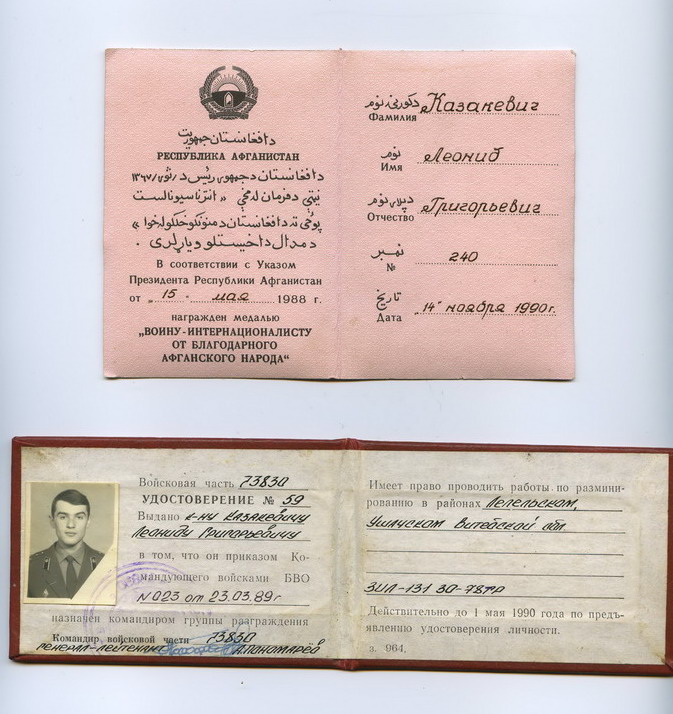 د افغانستان جمهوریت
РЕСПУБЛИКА АФГАНИСТАН
د افغانستان د جمهور رئیس د ۱۳۶۷
د افغانستان د
В соответствии с Указом
Президента Республики Афганистан
от „15 " мая 1988 г.
награжден медалью
„ВОИНУ-ИНТЕРНАЦИОНАЛИСТУ
ОТ БЛАГОДАРНОГО
АФГАНСКОГО НАРОДА“
د کورنۍ نوم
Казакевич
Фамилия
نوم
Леонид
Имя
د پلار نوم
Григорьевич
Отчество
نمبر
240
№
تاریخ
„14" ноября 1990г.
Дата
Войсковая часть 73830
УДОСТОВЕРЕНИЕ № 59
Выдано к-ну Казакевичу
Леониду Григорьевичу
в том, что он приказом Ко-
мандующего войсками БВО
N023 от 23.03.89г
назначен командиром группы разграждения
Командир войсковой части 73830
генерал-лейтенант А.Пономарёв
Имеет право проводить работы по размини-
рованию в районах Лепельском,
Ушачском Витебской обл.
ЗИЛ-131 30-78
Действительно до 1 мая 1990 года по предъ-
явлению удостоверения личности.
з. 964.